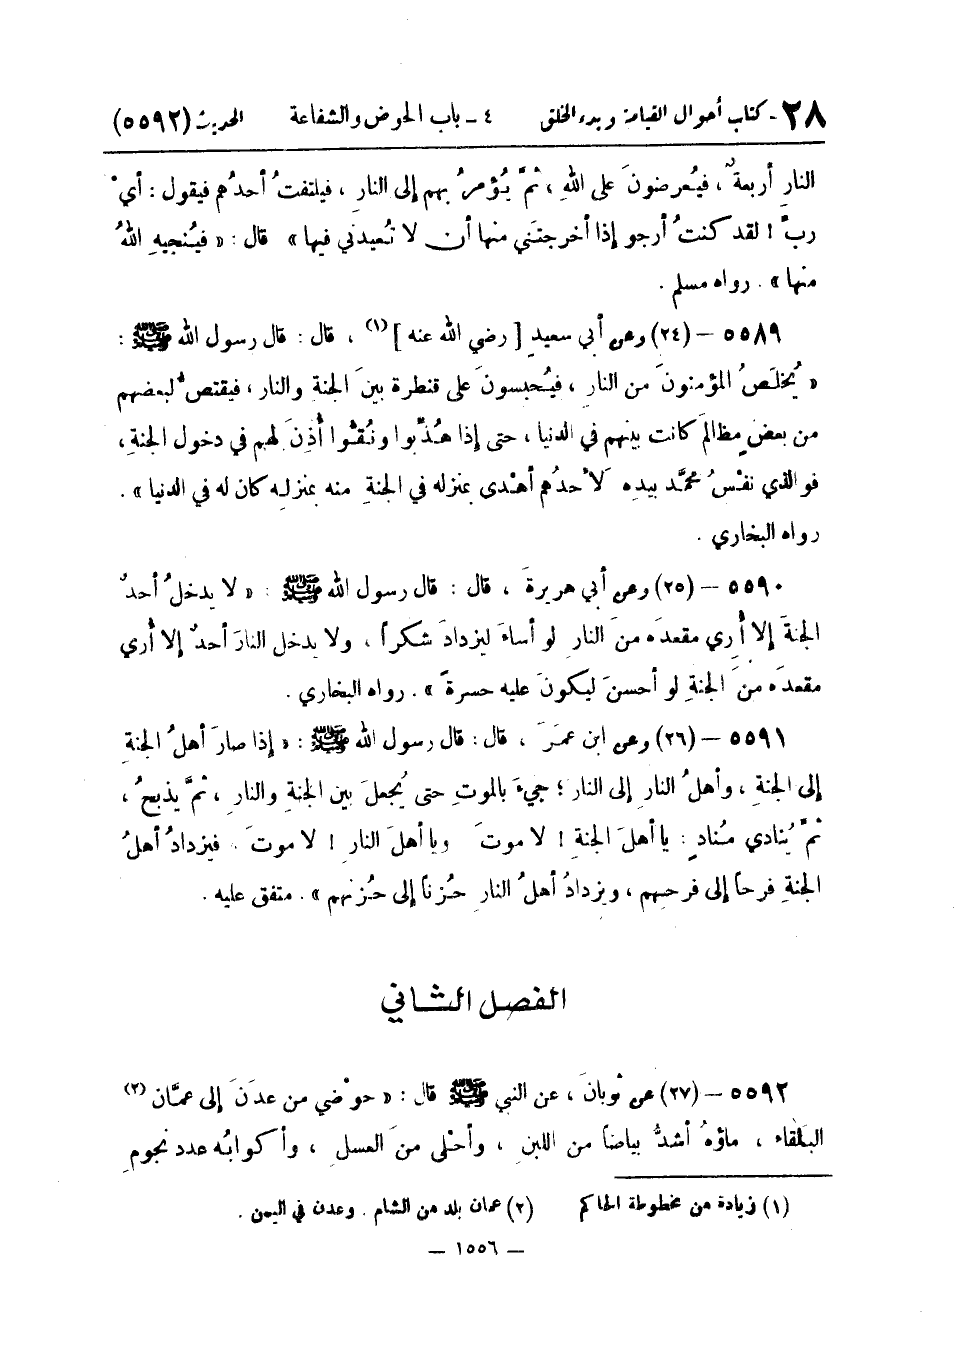 ٢٨ - كتاب أحوال القيامة وبدء الخلق ٤ - باب الحوض والشفاعة الحديث (٥٥٩٢)
النارِ أربعةٌ، فيُعرضونَ على اللهِ، ثمَّ يُؤمرُ بهم إلى النارِ، فيلتفتُ أحدُهم فيقول: أيْ
ربِّ! لقد كنتُ أرجو إذا أخرجتَني منها أن لا تُعيدَني فيها» قال: «فيُنجيهِ اللهُ
منها». رواه مسلم.
٥٥٨٩ – (٢٤) وعن أبي سعيدٍ [رضي الله عنه](١)، قال: قال رسول الله ﷺ:
«يُخلَصُ المؤمنونَ من النارِ، فيُحبسونَ على قنطرة بينَ الجنةِ والنار، فيقتصُّ لبعضهم
من بعضٍ مظالمَ كانت بينهم في الدنيا، حتى إذا هُذِّبوا ونُقُّوا أُذِنَ لهم في دخول الجنةِ،
فو الذي نفْسُ محمَّد بيده لَأحدُهم أهْدى بمنزله في الجنةِ منه بمنزلِه كان له في الدنيا».
رواه البخاري.
٥٥٩٠ – (٢٥) وعن أبي هريرةَ، قال: قال رسول الله ﷺ: «لا يدخلُ أحدٌ
الجنةَ إلا أُري مقعدَه منَ النار لو أساءَ ليزدادَ شكراً، ولا يدخل النارَ أحدٌ إلا أُري
مقعدَه منَ الجنةِ لو أحسنَ ليكونَ عليه حسرةً». رواه البخاري.
٥٥٩١ – (٢٦) وعن ابن عمَرَ، قال: قال رسول الله ﷺ: «إذا صارَ أهلُ الجنةِ
إلى الجنةِ، وأهلُ النارِ إلى النار؛ جيءَ بالموتِ حتى يُجعلَ بين الجنةِ والنارِ، ثمَّ يذبحُ،
ثمَّ يُنادي مُنادٍ: يا أهلَ الجنةِ! لا موتَ ويا أهلَ النارِ! لا موتَ. فيزدادُ أهلُ
الجنةِ فرحاً إلى فرحِهم، ويزدادُ أهلُ النارِ حُزناً إلى حُزنهم». متفق عليه.
الفصل الثاني
٥٥٩٢ – (٢٧) عن ثوبانَ، عن النبي ﷺ قال: «حوْضي من عدَنَ إلى عمَّان (٢)
البَلقاء، ماؤهُ أشدُّ بياضاً من اللبنِ، وأحْلى منَ العسلِ، وأكوابُه عدد نجومِ
(١) زيادة من مخطوطة الحاكم (٢) عمان بلد من الشام. وعدن في اليمن.
– ١٥٥٦ –